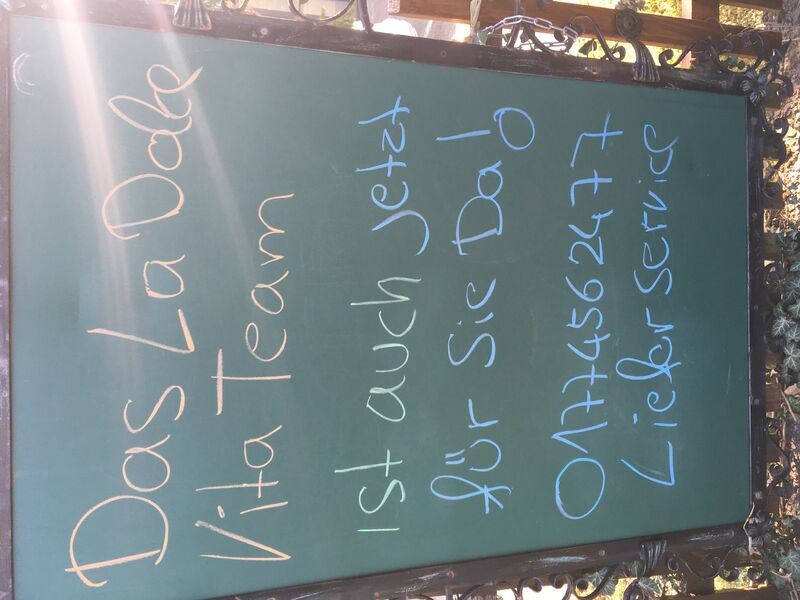 Das La Dolce
Vita Team
ist auch jetzt
für Sie Da!
01774562477
Lieferservice